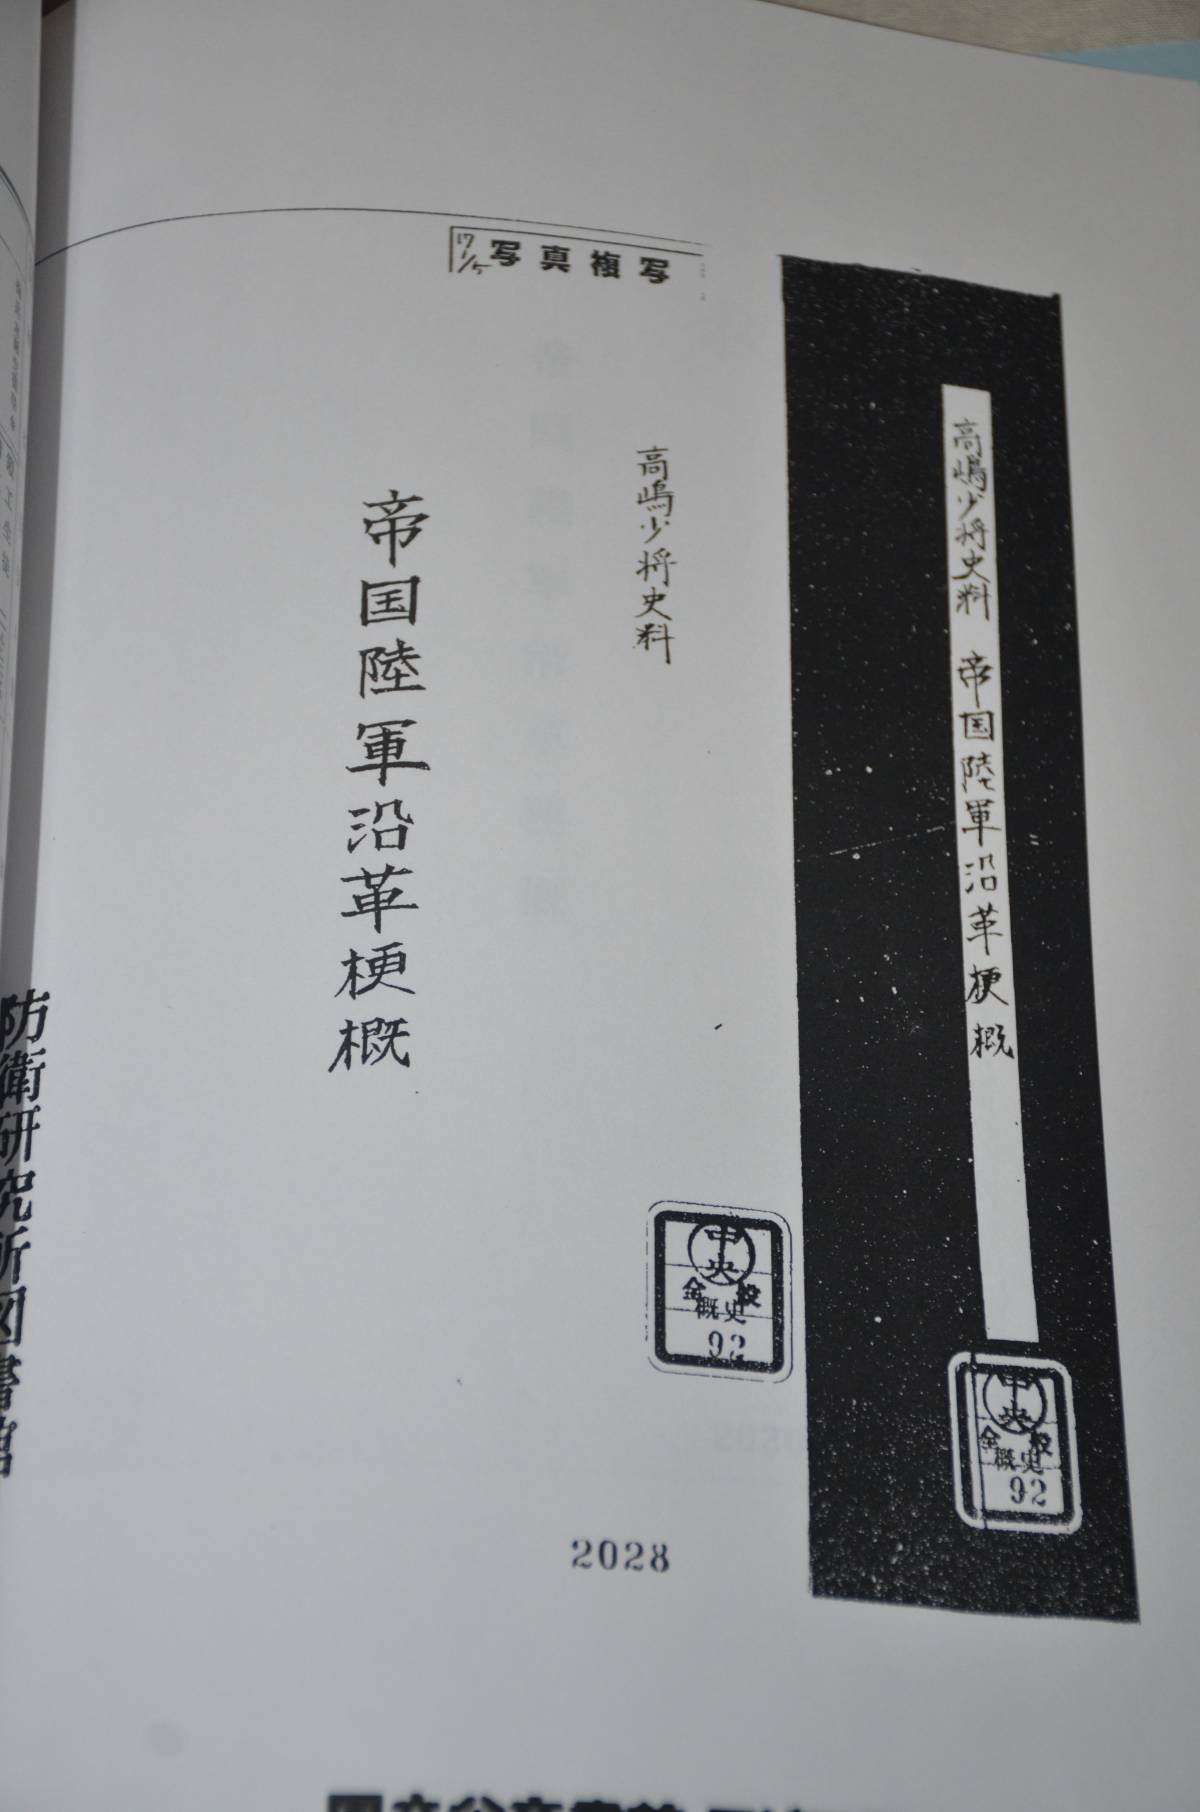 写真複写
17 1/5
高嶋少将史料 帝国陸軍沿革梗概
中央
全般
史概
92
高嶋少将史料
帝国陸軍沿革梗概
中央
全般
史概
92
2028
防衛研究所図書館